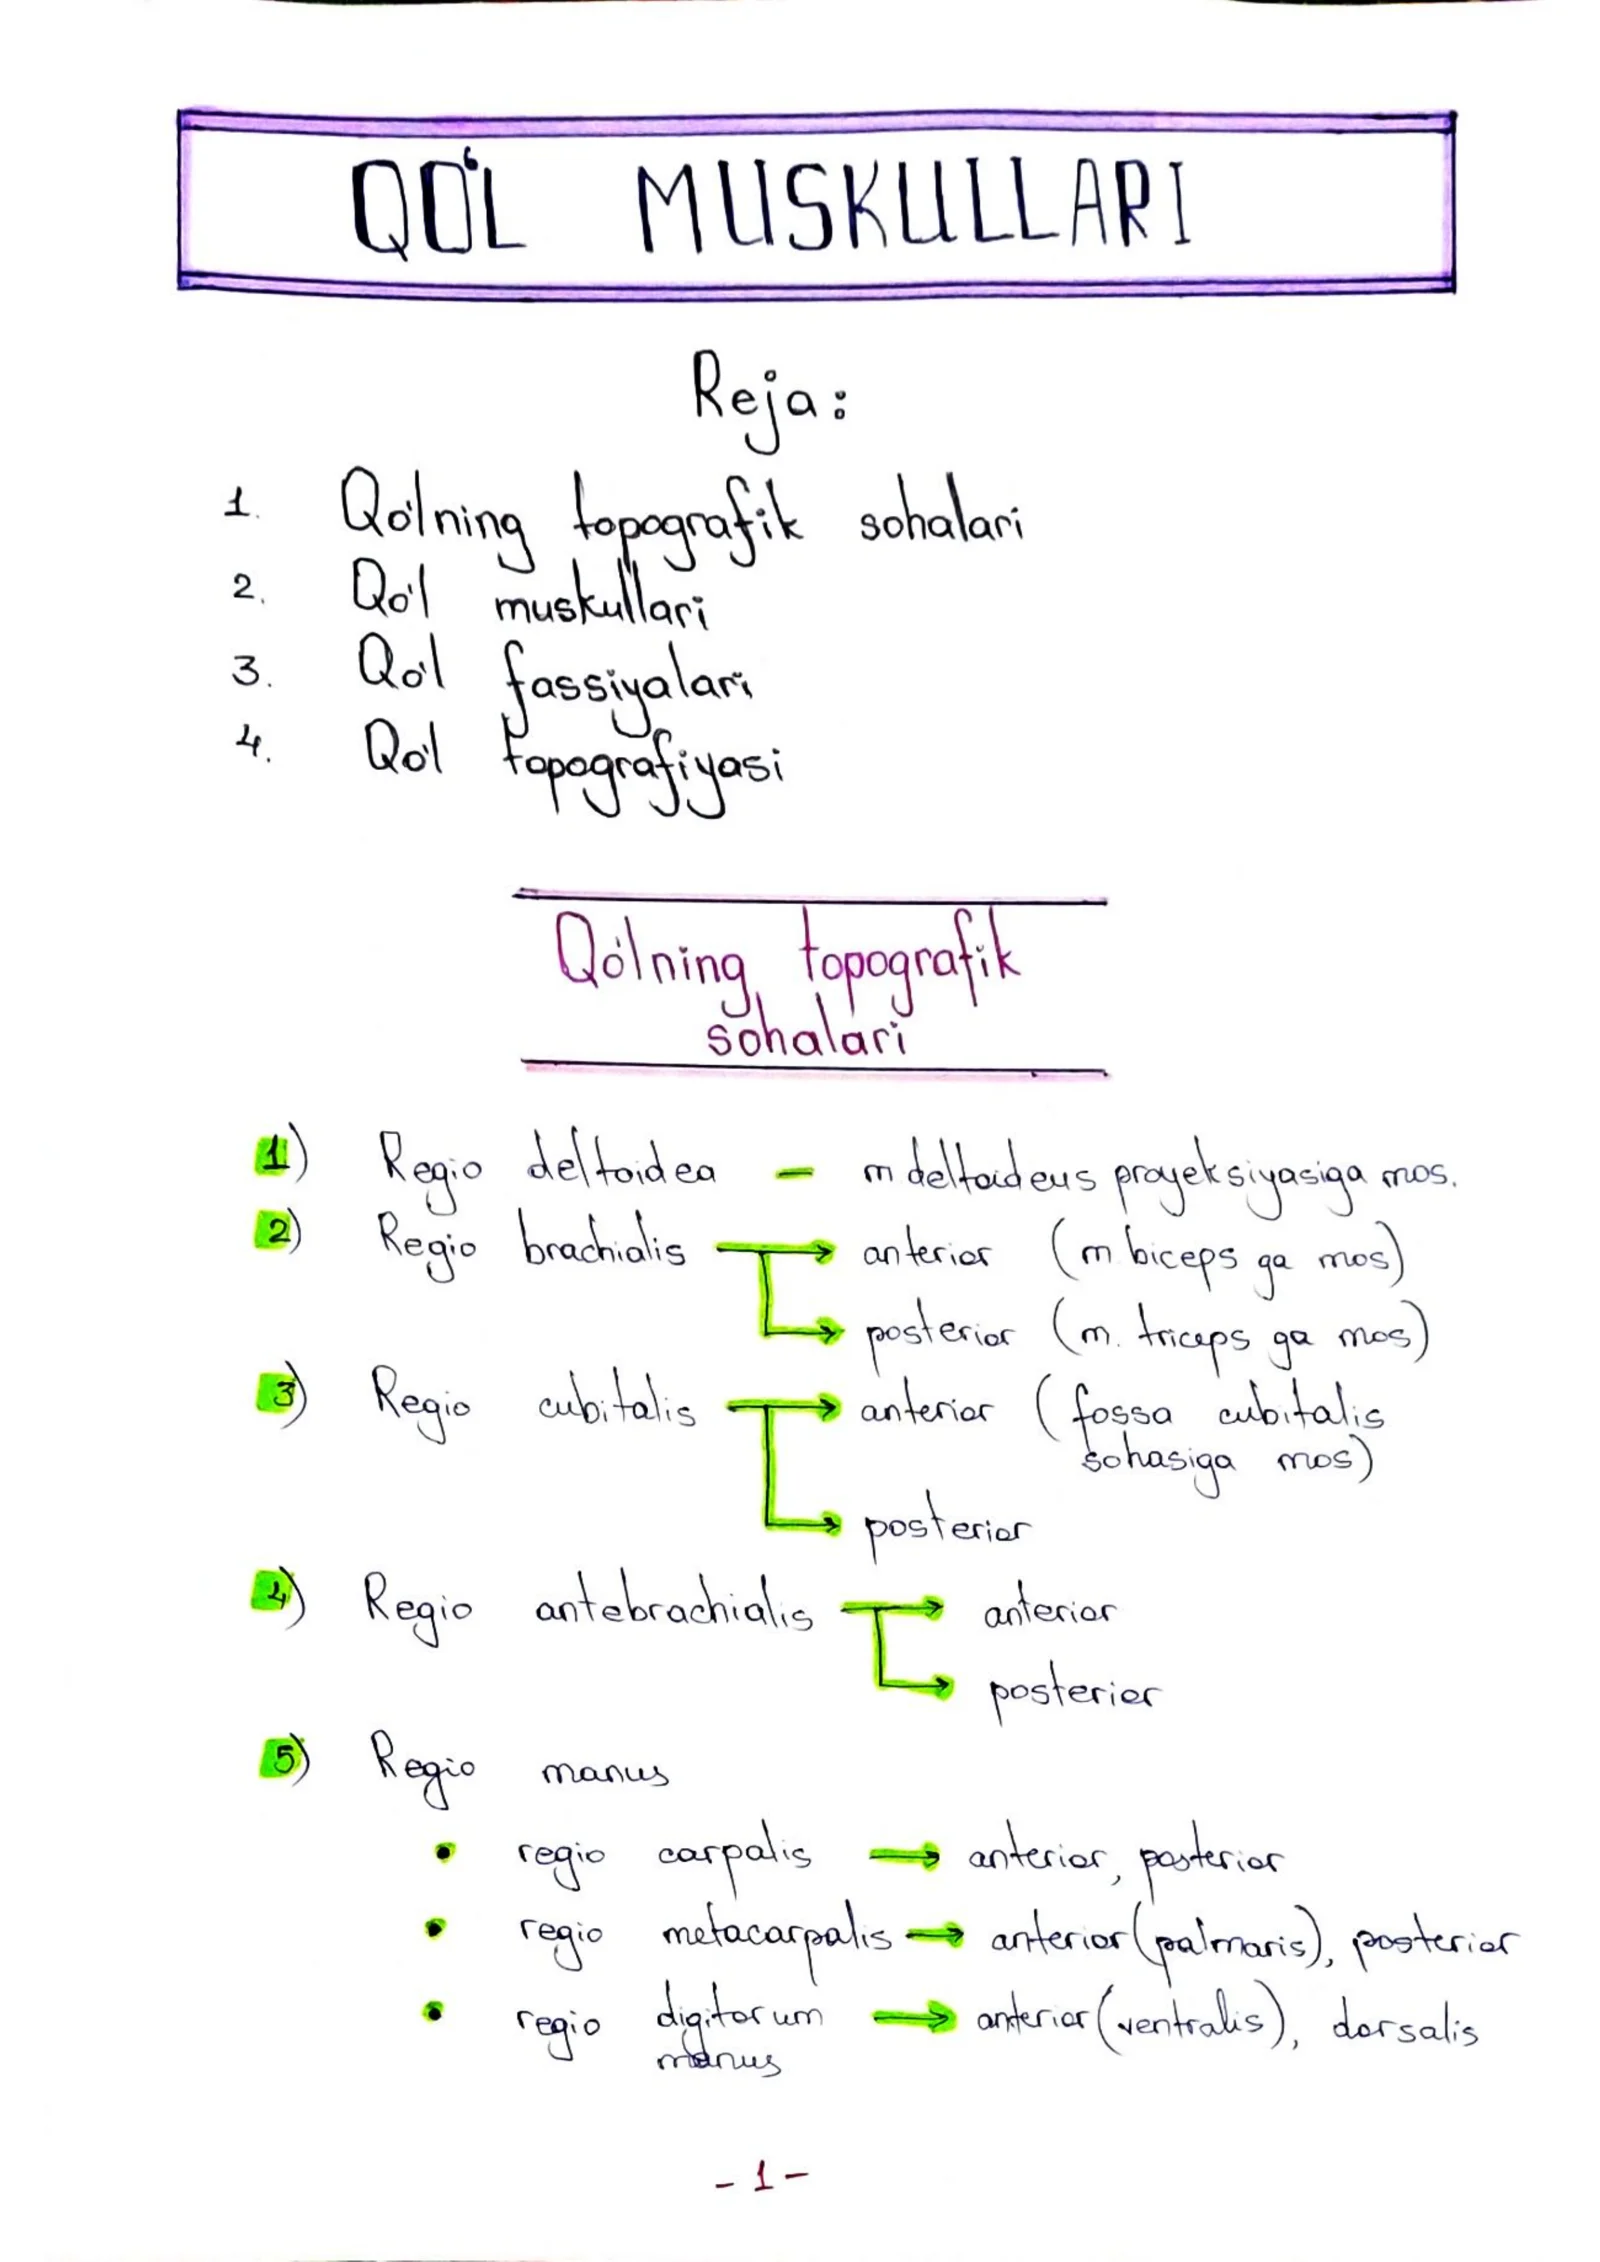 QO'L MUSKULLARI
Reja:
1. Qo'lning topografik sohalari
2. Qo'l muskullari
3. Qo'l fassiyalari
4. Qo'l topografiyasi
Qo'lning topografik
sohalari
1) Regio deltoidea - m deltoideus proyeksiyasiga mos.
2) Regio brachialis → anterior (m biceps ga mos)
→ posterior (m. triceps ga mos)
3) Regio cubitalis → anterior (fossa cubitalis
sohasiga mos)
→ posterior
4) Regio antebrachialis → anterior
→ posterior
5) Regio manus
• regio carpalis → anterior, posterior
• regio metacarpalis → anterior (palmaris), posterior
• regio digitorum → anterior (ventralis), dorsalis
manus
- 1 -